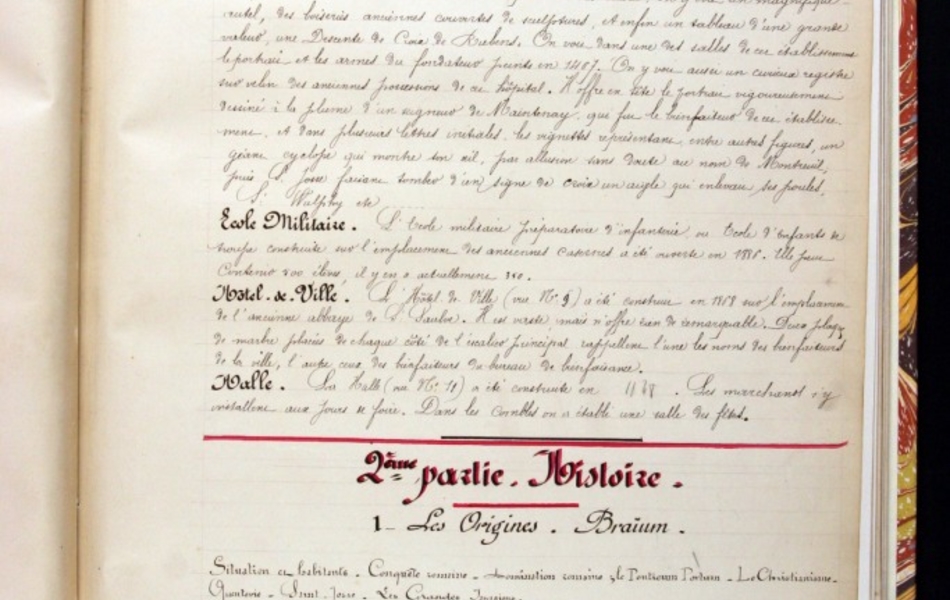 autel, des boiseries anciennes couvertes de sculptures, et enfin un tableau d'une grande
valeur, une Descente de Croix de Rubens. On voit dans une des salles de cet établissement
le portrait et les armes du fondateur peints en 1487. On y voit aussi un curieux registre
sur velin des anciennes possessions de cet hôpital. Il offre en tête le portrait vigoureusement
dessiné à la plume d'un seigneur de Maintenay, qui fut le bienfaiteur de cet établisse-
ment, et dans plusieurs lettres initiales, les vignettes représentant, entre autres figures, un
géant cyclope qui montre son œil, par allusion sans doute au nom de Montreuil,
puis St Josse faisant tomber d'un signe de croix un aigle qui enlevait ses poules,
St Wulphy etc
Ecole Militaire. L'Ecole militaire préparatoire d'infanterie, ou Ecole d'Enfants de
troupe construite sur l'emplacement des anciennes casernes a été ouverte en 1886. Elle peut
contenir 500 élèves, il y en a actuellement 350.
Hôtel-de-Ville. L'Hôtel de Ville (vue N° 9) a été construit en 1868 sur l'emplacement
de l'ancienne abbaye de St Saulve. Il est vaste, mais n'offre rien de remarquable. Deux plaques
de marbre placées de chaque côté de l'escalier principal rappellent l'une les noms des bienfaiteurs
de la ville, l'autre ceux des bienfaiteurs du bureau de bienfaisance.
Halle. La Halle (vue N° 11) a été construite en . Les marchands s'y
installent aux jours de foire. Dans les combles on a établi une salle des fêtes.
2ème partie. Histoire.
1- Les Origines. Braïum.
Situation et habitants - Conquête romaine - Domination romaine, le Ponticum Portum - Le Christianisme -
Quentovic - Saint-Josse - Les Grandes Invasions.